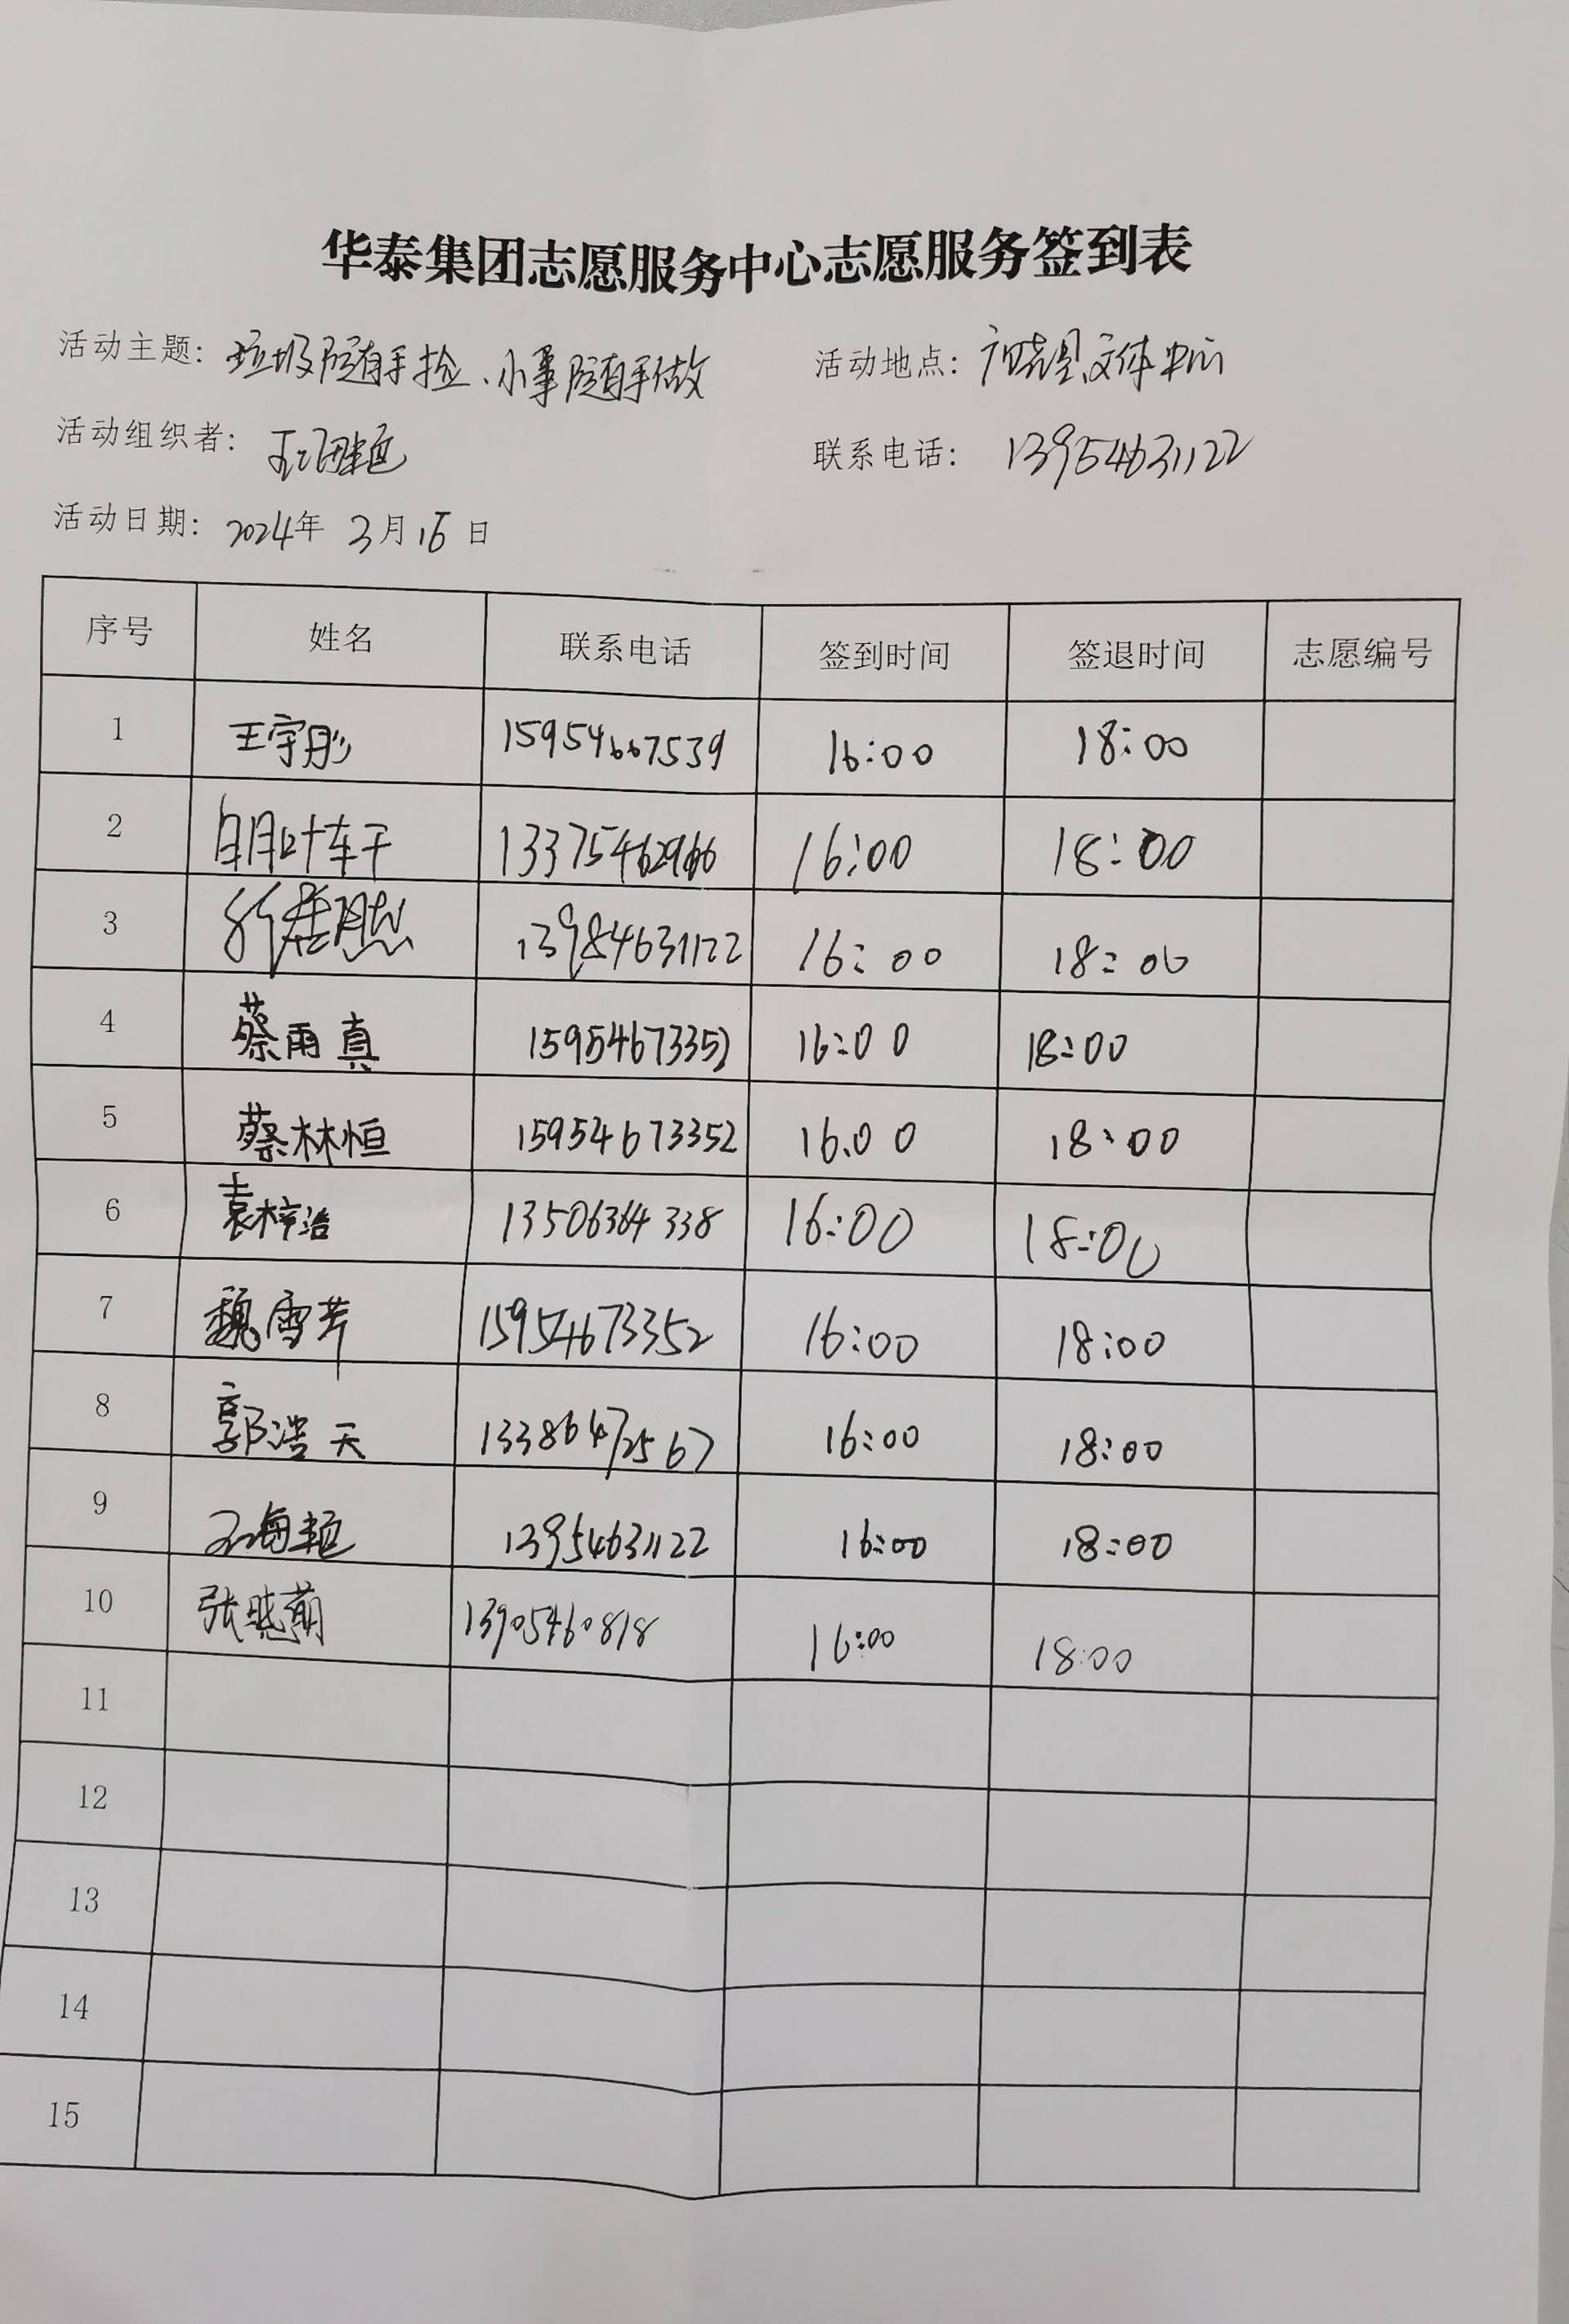 华泰集团志愿服务中心志愿服务签到表
活动主题：垃圾随手捡、小事随手做 活动地点：广饶县文体中心
活动组织者：王海艳 联系电话：13954631122
活动日期：2024年 3月 16 日
序号 姓名 联系电话 签到时间 签退时间 志愿编号
1 王宇彤 15954667539 16:00 18:00
2 13375462966 16:00 18:00
3 13984631122 16:00 18:00
4 蔡雨真 15954673352 16:00 18:00
5 蔡林恒 15954673352 16.00 18:00
6 袁梓治 13506364338 16:00 18:00
7 魏雪芹 15954673352 16:00 18:00
8 郭浩天 13386472567 16:00 18:00
9 王海艳 13954631122 16:00 18:00
10 张晓萌 13905460818 16:00 18:00
11
12
13
14
15